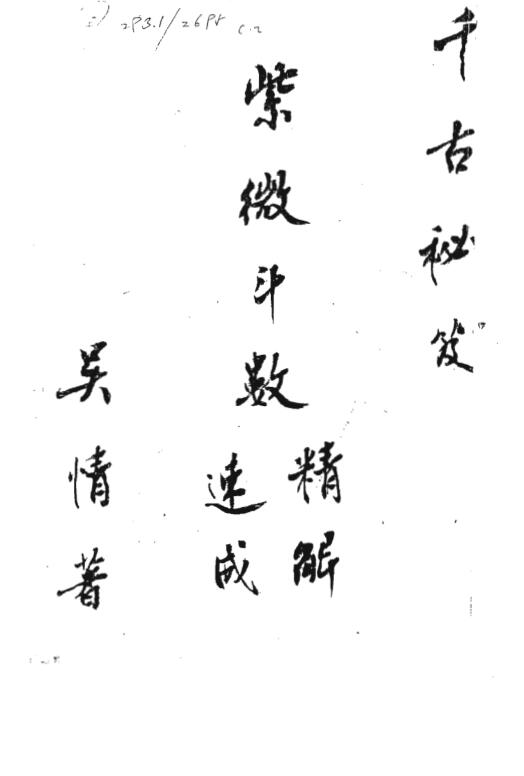 千古秘笈
紫微斗數
精解
速成
吳情著
293.1/2698 C.2